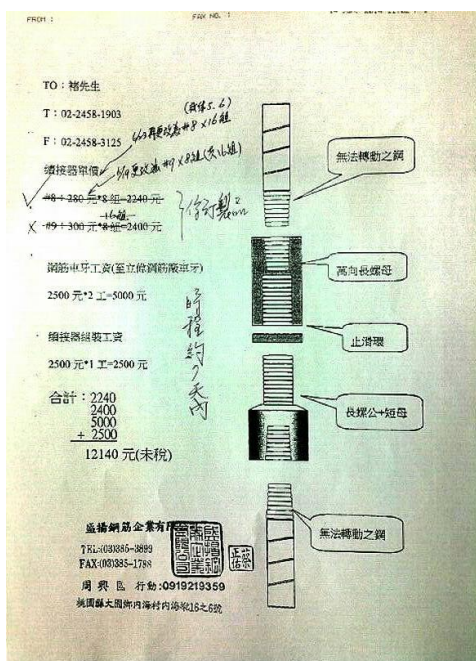 FROM :
FAX NO. :
TO：褚先生
T：02-2458-1903
F：02-2458-3125
續接器單價
#8：280 元*8 組=2240 元
#9：300 元*8 組=2400 元
鋼筋車牙工資(至立偉鋼筋廠車牙)
2500 元*2 工=5000 元
續接器組裝工資
2500 元*1 工=2500 元
合計：2240
2400
5000
+ 2500
12140 元(未稅)
時程約
天內
無法轉動之鋼
萬向長螺母
止滑環
長螺公+短母
無法轉動之鋼
盛揚鋼筋企業有限
TEL:(03)385-3899
FAX:(03)385-1788
周興區 行動:0919219359
桃園縣大園鄉內海村內海墘16之6號